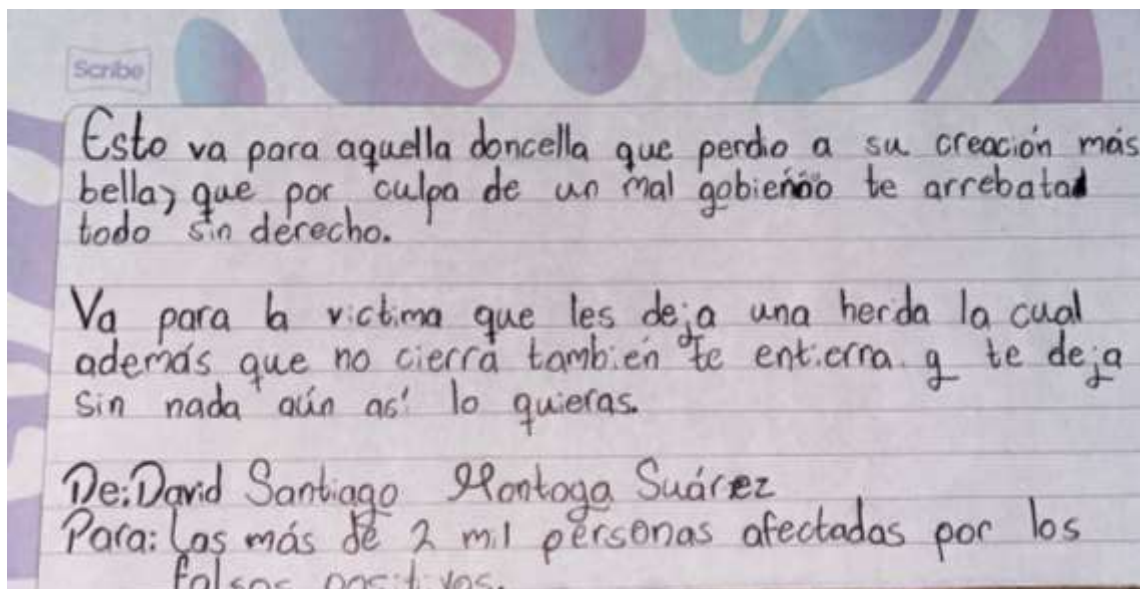 Scribe
Esto va para aquella doncella que perdio a su creación más
bella, que por culpa de un mal gobierno te arrebatad
todo sin derecho.
Va para la victima que les deja una herida la cual
además que no cierra también te entierra y te deja
sin nada aún así lo quieras.
De: David Santiago Montoya Suárez
Para: Las más de 2 mil personas afectadas por los
falsos positivos.